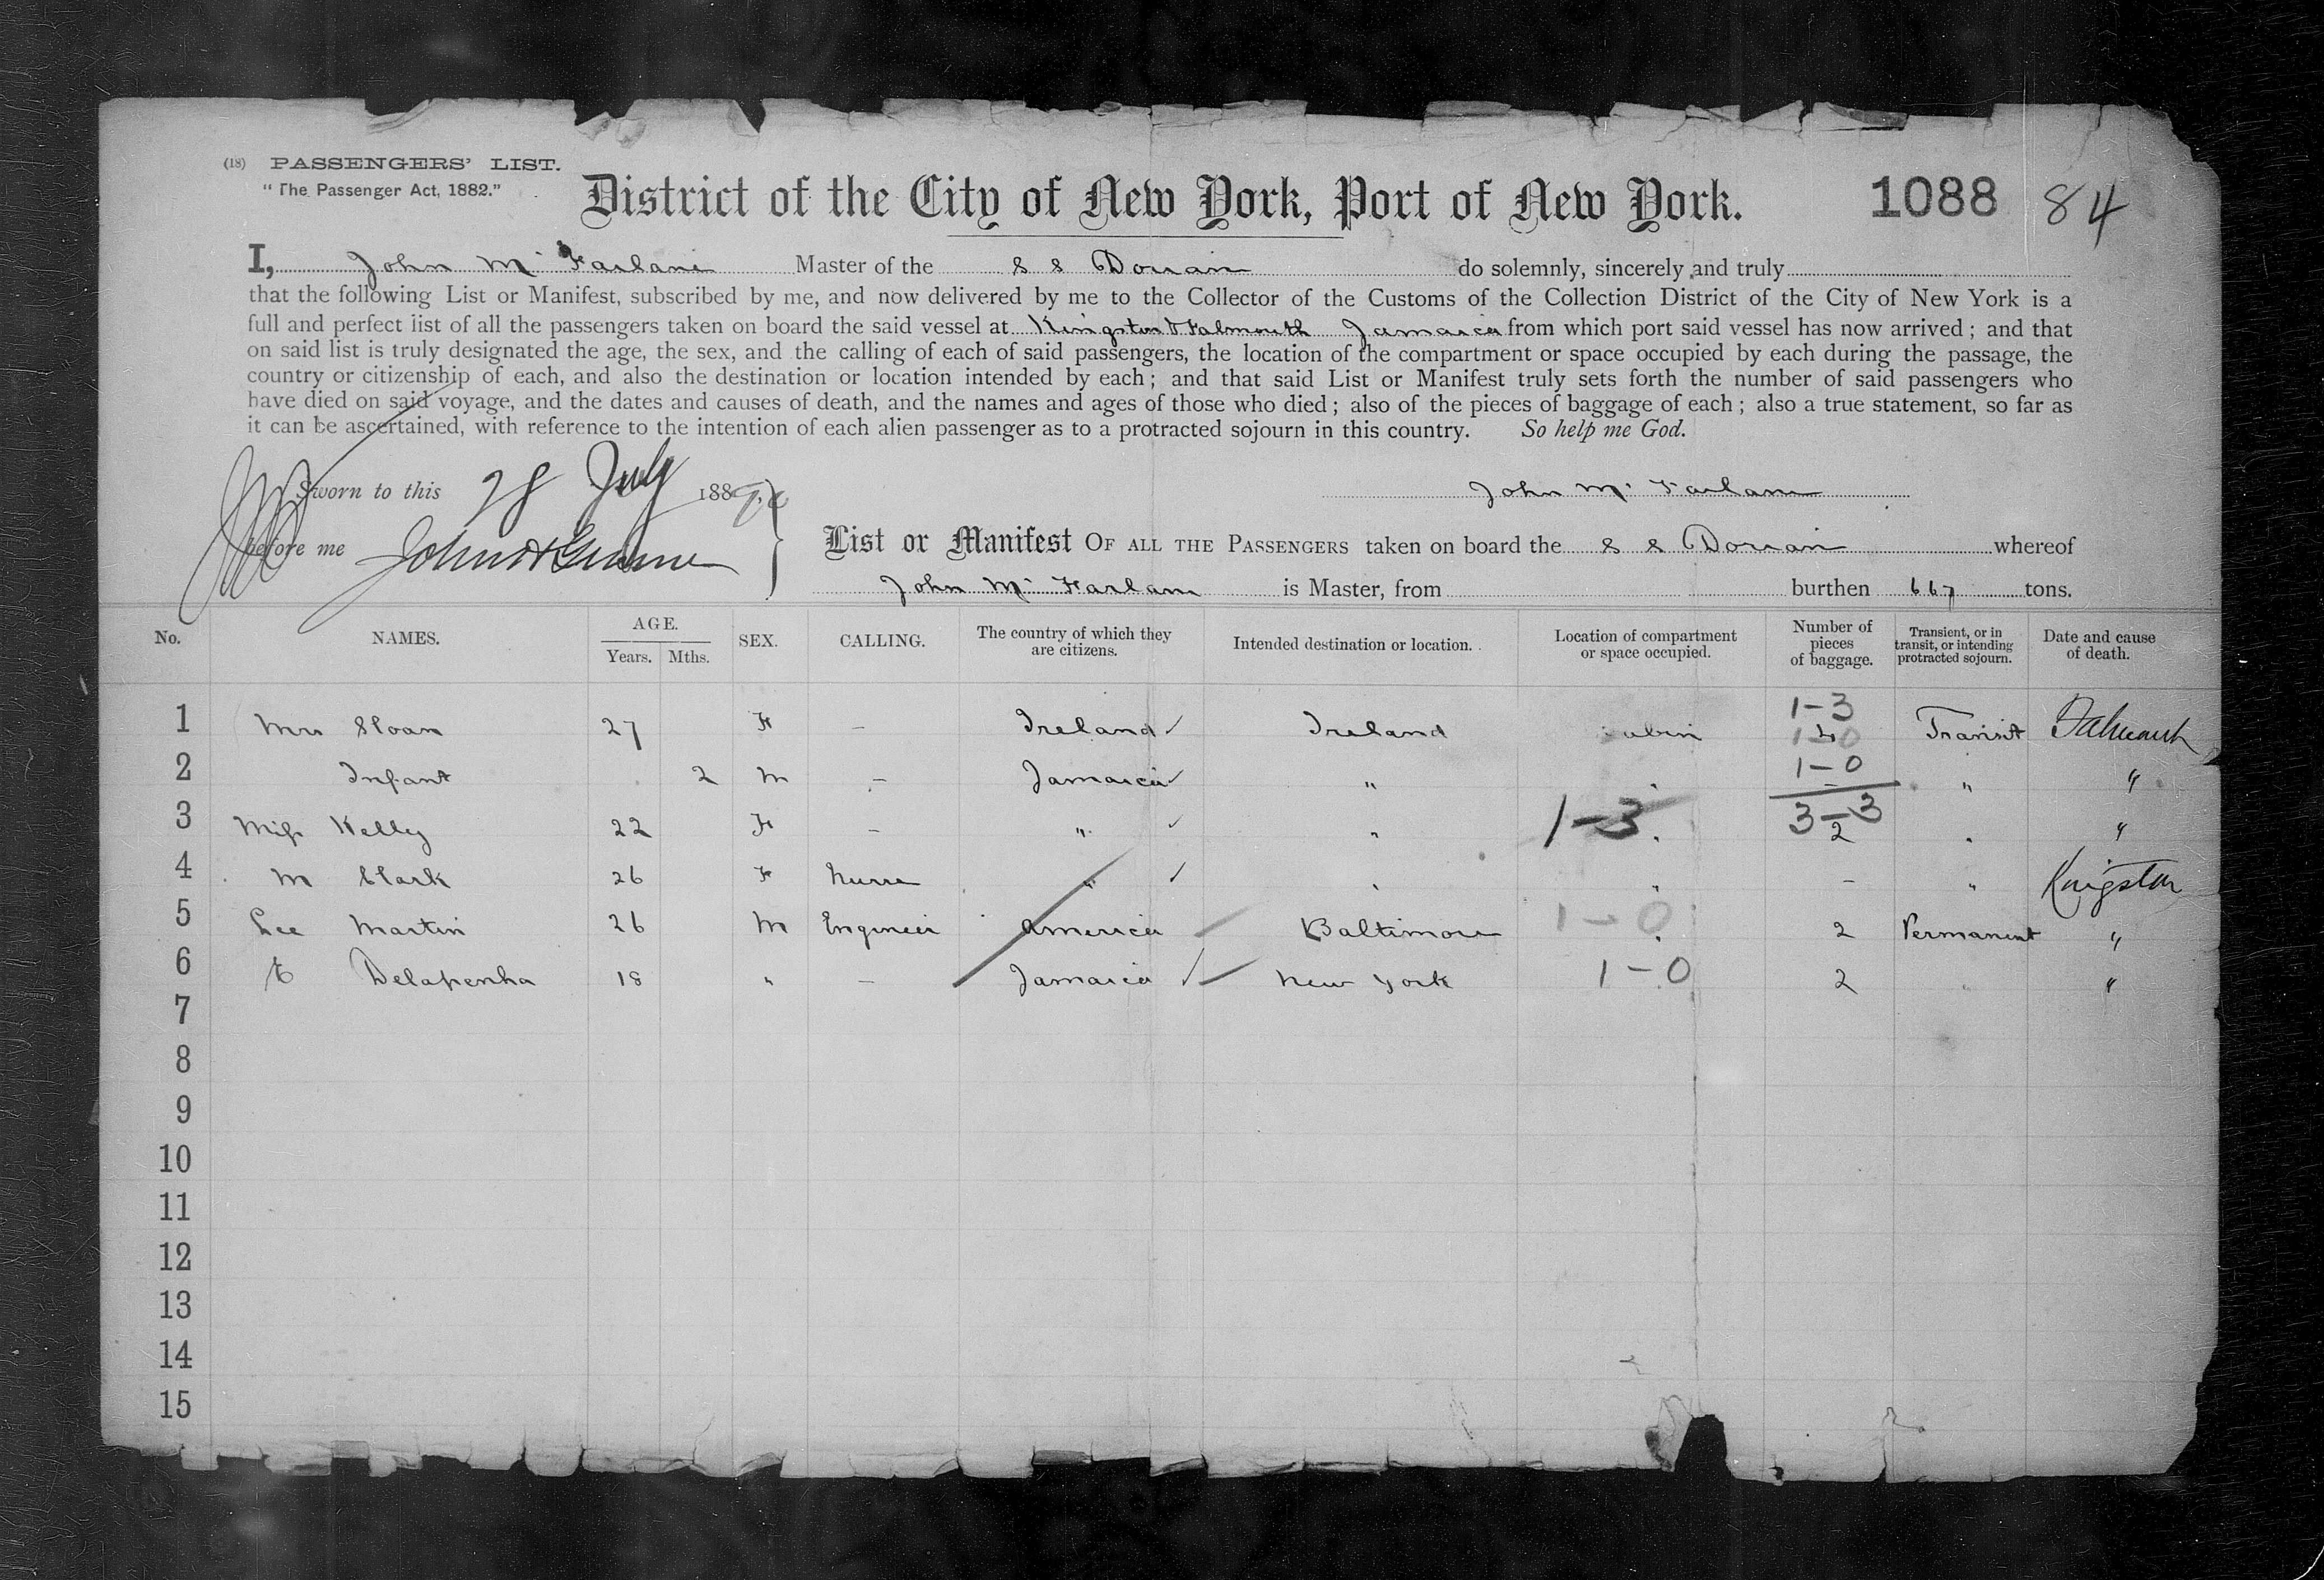 (18) PASSENGERS' LIST.
"The Passenger Act, 1882."
District of the City of New York, Port of New York.
1088 84
I, John McFarlane Master of the S S Dorian do solemnly, sincerely and truly
that the following List or Manifest, subscribed by me, and now delivered by me to the Collector of the Customs of the Collection District of the City of New York is a
full and perfect list of all the passengers taken on board the said vessel at Kingston & Falmouth Jamaica from which port said vessel has now arrived; and that
on said list is truly designated the age, the sex, and the calling of each of said passengers, the location of the compartment or space occupied by each during the passage, the
country or citizenship of each, and also the destination or location intended by each; and that said List or Manifest truly sets forth the number of said passengers who
have died on said voyage, and the dates and causes of death, and the names and ages of those who died; also of the pieces of baggage of each; also a true statement, so far as
it can be ascertained, with reference to the intention of each alien passenger as to a protracted sojourn in this country. So help me God.
Sworn to this 28 July 188
John McFarlane
before me
List or Manifest OF ALL THE PASSENGERS taken on board the S S Dorian whereof
John McFarlane is Master, from burthen 667 tons.
No. NAMES. AGE. Years. Mths. SEX. CALLING. The country of which they are citizens. Intended destination or location. Location of compartment or space occupied. Number of pieces of baggage. Transient, or in transit, or intending protracted sojourn. Date and cause of death.
1 Mrs Sloan 27 F – Ireland ✓ Ireland Cabin 1-3 4 Transit Falmouth
2 Infant 2 M – Jamaica ✓ " 1-0 – " "
3 Miss Kelly 22 F – " ✓ " 1-3 3-3 2 " "
4 M Clark 26 F Nurse " ✓ " " – " Kingston
5 Lee Martin 26 M Engineer America Baltimore 1-0 " 2 Permanent "
6 E Delapenha 18 " – Jamaica ✓ New York 1-0 2 "
7
8
9
10
11
12
13
14
15